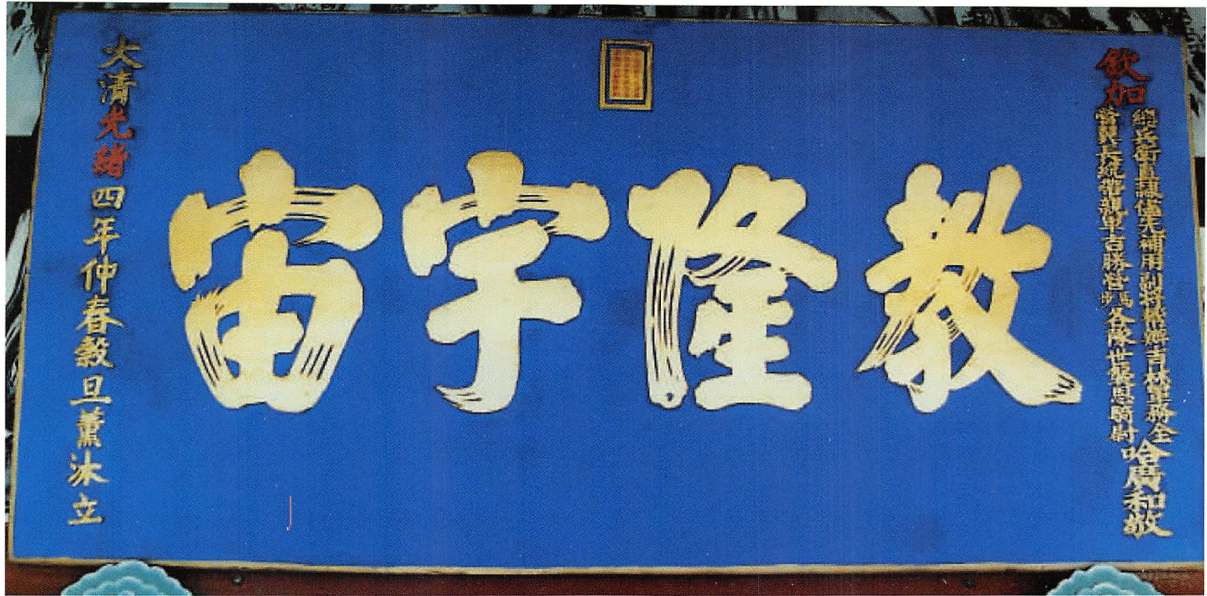 教隆宇宙
欽加
總兵銜直隸儘先補用副將幫辦吉林軍務全
營翼長統帶親軍吉勝營馬步各隊世襲恩騎尉
哈廣和敬
大清光緒四年仲春穀旦薰沐立